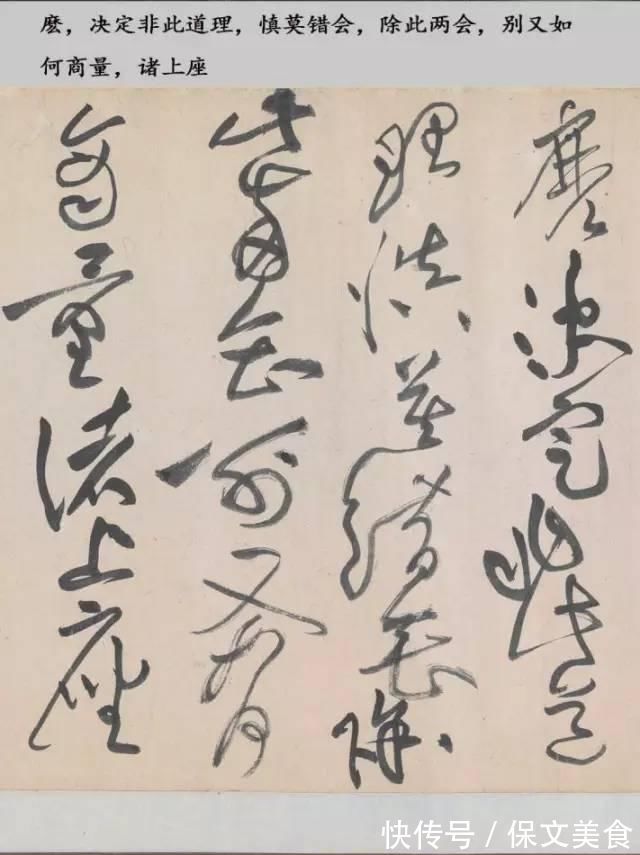 麽，决定非此道理，慎莫错会，除此两会，别又如
何商量，诸上座
麽決定非此道
理慎莫錯會除
此兩會別又如何
商量諸上座
快传号／保文美食